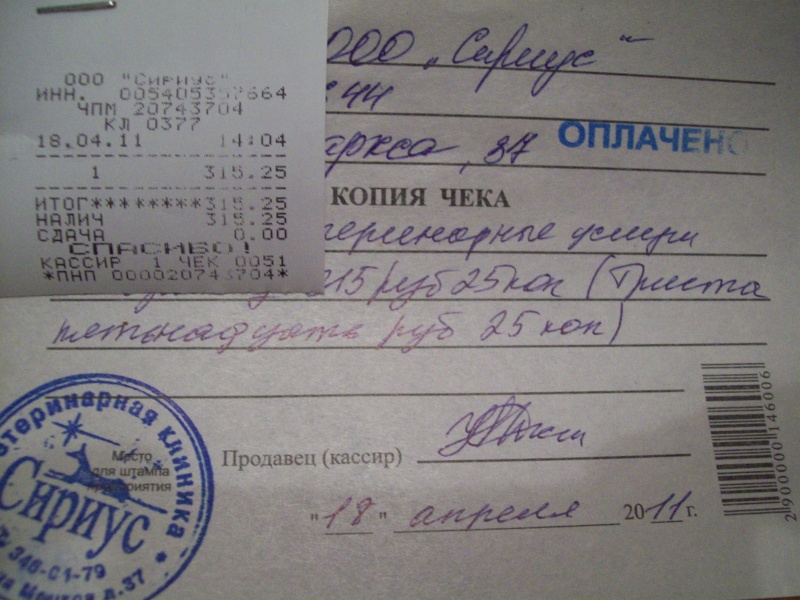 ООО "Сириус"
ИНН. 005405357664
ЧПМ 20743704
КЛ 0377
18.04.11 14:04
1 315.25
ИТОГ********315.25
НАЛИЧ 315.25
СДАЧА 0.00
СПАСИБО!
КАССИР 1 ЧЕК 0051
*ПНП 000020743704*
ООО „Сириус“
44
аркса, 37
ОПЛАЧЕНО
КОПИЯ ЧЕКА
теринарные услуги
315 руб 25 коп (Триста
пятьнадцать руб 25 коп)
Продавец (кассир)
"18" апреля 2011 г.
Место
для штампа
предприятия
етеринарная клиника
Сириус
346-01-79
д.37
2 900000 146006